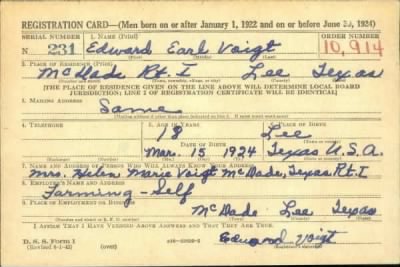 REGISTRATION CARD—(Men born on or after January 1, 1922 and on or before June 30, 1924)
SERIAL NUMBER 1. NAME (Print) ORDER NUMBER
N 231 Edward Earl Voigt 10,914
(First) (Middle) (Last)
2. PLACE OF RESIDENCE (Print)
McDade Rt. I Lee Texas
(Number and street) (Town, township, village, or city) (County) (State)
[THE PLACE OF RESIDENCE GIVEN ON THE LINE ABOVE WILL DETERMINE LOCAL BOARD
JURISDICTION; LINE 2 OF REGISTRATION CERTIFICATE WILL BE IDENTICAL]
3. MAILING ADDRESS
Same
[Mailing address if other than place indicated on line 2. If same insert word same]
4. TELEPHONE 5. AGE IN YEARS 6. PLACE OF BIRTH
18 Lee
DATE OF BIRTH (Town or county)
Mar. 15 1924 Texas U.S.A.
(Mo.) (Day) (Yr.) (State or country)
7. NAME AND ADDRESS OF PERSON WHO WILL ALWAYS KNOW YOUR ADDRESS
Mrs. Helen Marie Voigt McDade, Texas, Rt. I
8. EMPLOYER'S NAME AND ADDRESS
Farming - Self
9. PLACE OF EMPLOYMENT OR BUSINESS
McDade Lee Texas
(Number and street or R. F. D. number) (Town) (County) (State)
I AFFIRM THAT I HAVE VERIFIED ABOVE ANSWERS AND THAT THEY ARE TRUE.
D. S. S. Form 1
(Revised 6-1-42) (over) Edward Voigt